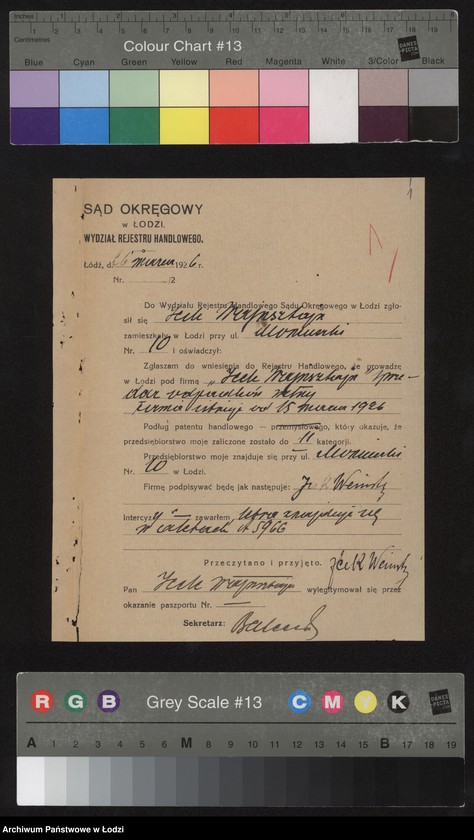 Inches 1 2 3 4 5 6 7 8
Centimetres 1 2 3 4 5 6 7 8 9 10 11 12 13 14 15 16 17 18 19
Colour Chart #13
DANES PICTA
Blue Cyan Green Yellow Red Magenta White 3/Color Black
1
SĄD OKRĘGOWY
w ŁODZI.
WYDZIAŁ REJESTRU HANDLOWEGO.
Łódź, d. 16 marca 1926 r.
Nr. /2
Do Wydziału Rejestru Handlowego Sądu Okręgowego w Łodzi zgło-
sił się Icek Wajnsztajn
zamieszkały w Łodzi przy ul. Moniuszki
Nr. 10 i oświadczył:
Zgłaszam do wniesienia do Rejestru Handlowego, że prowadzę
w Łodzi pod firmą „Icek Wajnsztajn" sprze-
daż odpadków wełny
Firma istnieje od 15 marca 1926
Podług patentu handlowego — przemysłowego, który okazuję, że
przedsiębiorstwo moje zaliczone zostało do II kategorji.
Przedsiębiorstwo moje znajduje się przy ul. Moniuszki
Nr. 10 w Łodzi.
Firmę podpisywać będę jak następuje:
Intercyzę zawarłem, która znajduje się
w aktach 5966
Przeczytano i przyjęto.
Pan Icek Wajnsztajn wylegitymował się przez
okazanie paszportu Nr. —
Sekretarz:
R G B Grey Scale #13 C M Y K
DANES PICTA
A 1 2 3 4 5 6 M 8 9 10 11 12 13 14 15 B 17 18 19
Archiwum Państwowe w Łodzi